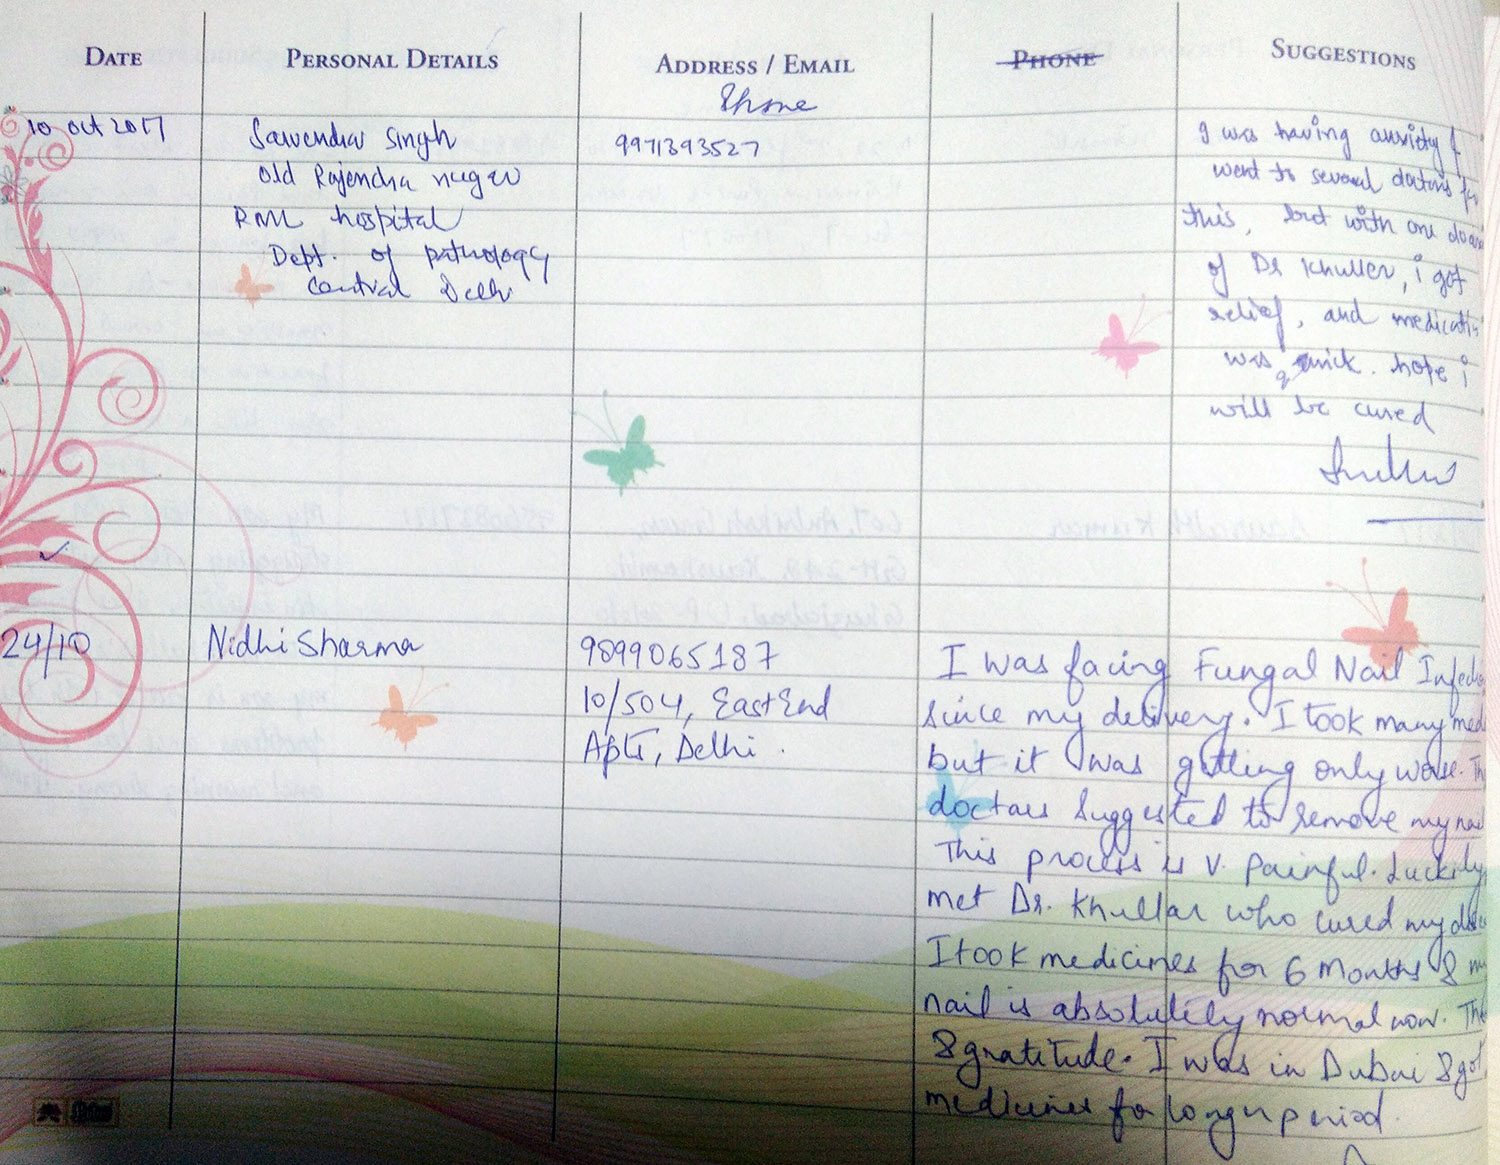 DATE PERSONAL DETAILS ADDRESS / EMAIL PHONE SUGGESTIONS
Phone
10 Oct 2017
Sarvendra Singh
Old Rajendra nagar
RML hospital
Dept. of pathology
Central Delhi
9971393527
I was having anxiety
went to several doctors for
this, but with one
of Dr Khuller, i got
relief, and medicati
was quick. hope i
will be cured
24/10
Nidhi Sharma
9899065187
10/504, East End
Apts, Delhi.
I was facing Fungal Nail Infec
since my delivery. I took many med
but it was getting only worse. Th
doctors suggested to remove my na
This process is v. painful. Luckily
met Dr. Khullar who cured my
I took medicines for 6 months & my
nail is absolutely normal now. Th
& gratitude. I was in Dubai & got
medicines for longer period.